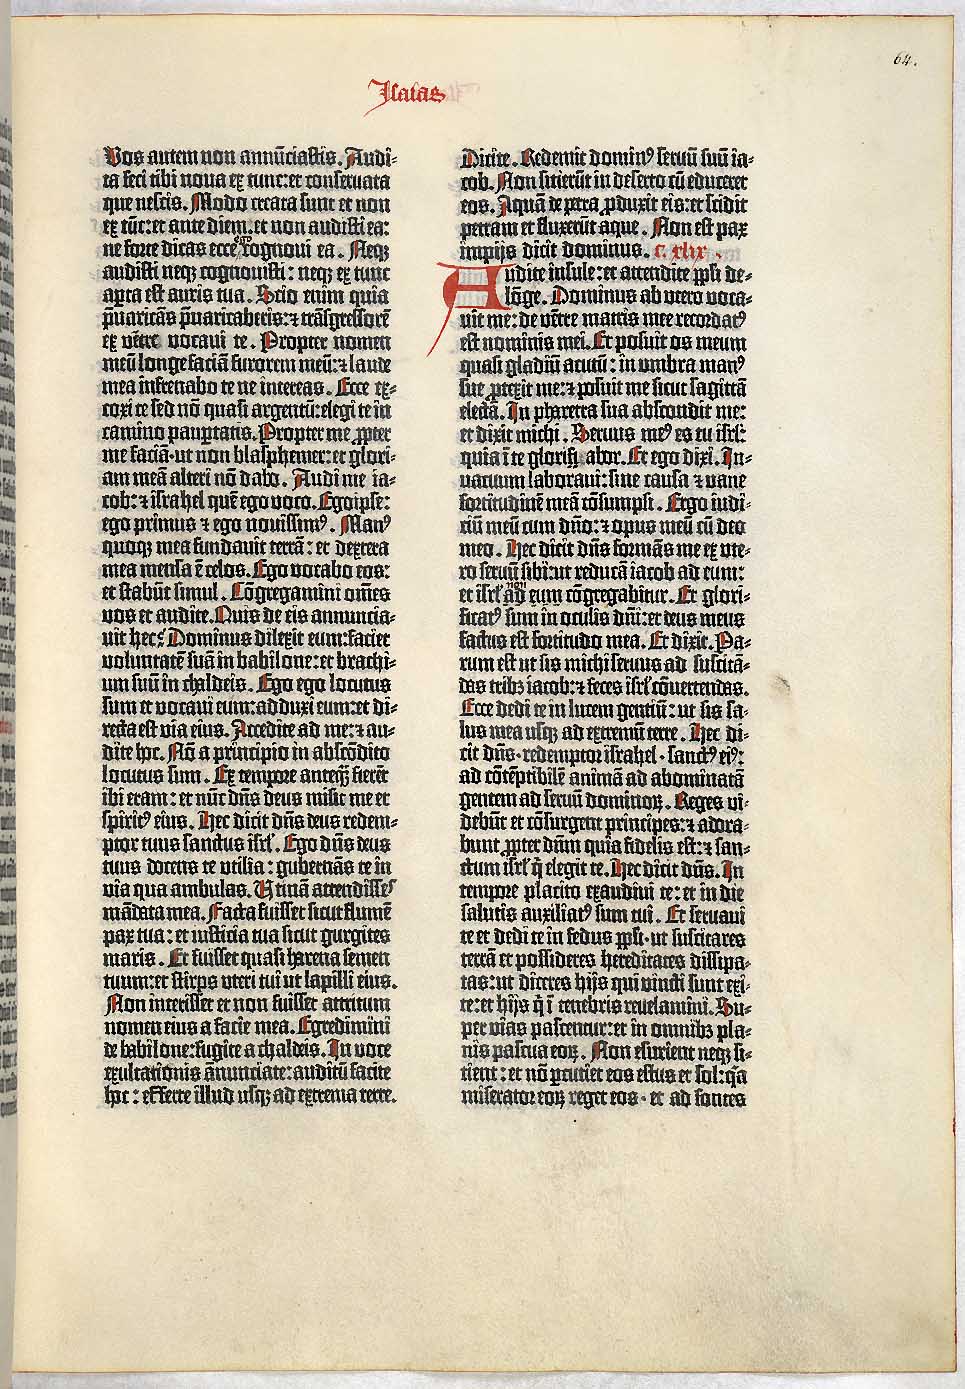 64.
Isaias
Vos autem non annūciastis. Audi-
ta feci tibi noua ex tunc: et conseruata
que nescis. Modo creata sunt et non
ex tūc: et ante diem. et non audisti ea:
ne forte dicas ecce ego cognoui ea. Neqz
audisti neqz cognouisti: neqz ex tunc
aꝑta est auris tua. Scio enim quia
p̄uaricās p̄uaricaberis: ⁊ trāsgressorē
ex vētre vocaui te. Propter nomen
meū longe faciā furorem meū: ⁊ laude
mea infrenabo te ne intereas. Ecce ex-
coxi te sed nō quasi argentū: elegi te in
camino pauꝑtatis. Propter me ꝓpter
me faciā. ut non blasphemer: et glori-
am meā alteri nō dabo. Audi me ia-
cob: ⁊ israhel quē ego voco. Ego ipse:
ego primus ⁊ ego nouissimꝰ. Manꝰ
quoqz mea fundauit terrā: et dextera
mea mensa ē celos. Ego vocabo eos:
et stabūt simul. Cōgregamini om̄es
vos et audite. Quis de eis annuncia-
uit hec? Dominus dilexit eum: faciet
voluntatē suā in babilone: et brachi-
um suū in chaldeis. Ego ego locutus
sum et vocaui eum: adduxi eum: et di-
recta est via eius. Accedite ad me: ⁊ au-
dite hoc. Nō a principio in abscōdito
locutus sum. Ex tempore anteq̄ fierēt
ibi eram: et nūc dn̄s deus misit me et
spiritꝰ eius. Hec dicit dn̄s deus redem-
ptor tuus sanctus isrl'. Ego dn̄s deus
tuus docens te vtilia: gubernās te in
via qua ambulas. Vtinā attendisses
mādata mea. Facta fuisset sicut flumē
pax tua: et iusticia tua sicut gurgites
maris. Et fuisset quasi harena semen
tuum: et stirps vteri tui ut lapilli eius.
Non interisset et non fuisset attritum
nomen eius a facie mea. Egredimini
de babilone: fugite a chaldeis. In voce
exultationis ānunciate: auditū facite
hoc: efferte illud usqz ad extrema terre.
Dicite. Redemit dominꝰ seruū suū ia-
cob. Non sitierūt in deserto cū educeret
eos. Aquā de petra ꝓduxit eis: et scidit
petram et fluxerūt aque. Non est pax
impijs dicit dominus. c. xlix.
Audite insule: et attendite ppl'i de-
lōge. Dominus ab vtero voca-
uit me: de vētre matris mee recordatꝰ
est nominis mei. Et posuit os meum
quasi gladiū acutū: in umbra manꝰ
sue ꝓtexit me: ⁊ posuit me sicut sagittā
electā. In pharetra sua abscondit me:
et dixit michi. Seruus meꝰ es tu isrl':
quia ī te glorificabor. Et ego dixi. In-
uacuum laboraui: sine causa ⁊ vane
fortitudinē meā cōsumpsi. Ergo iudi-
ciū meū cum dn̄o: ⁊ opus meū cū deo
meo. Hec dicit dn̄s formās me ex vte-
ro seruū sibi: ut reducā iacob ad eum:
et isrl' ad eum non cōgregabitur. Et glori-
ficatꝰ sum in oculis dn̄i: et deus meus
factus est fortitudo mea. Et dixit. Pa-
rum est ut sis michi seruus ad suscitā-
das tribz iacob: ⁊ feces isrl' cōuertendas.
Ecce dedi te in lucem gentiū: ut sis sa-
lus mea usqz ad extremū terre. Hec di-
cit dn̄s. redemptor israhel. sanctꝰ eiꝰ:
ad cōtēptibilē animā ad abominatā
gentem ad seruū dominoꝝ. Reges vi-
debūt et cōsurgent principes: ⁊ adora-
bunt ꝓpter dn̄m quia fidelis est: ⁊ san-
ctum isrl' q̄ elegit te. Hec dicit dn̄s. In
tempore placito exaudiui te: et in die
salutis auxiliatꝰ sum tui. Et seruaui
te et dedi te in fedus ppl'i. ut suscitares
terrā et possideres hereditates dissipa-
tas: ut diceres hijs qui vincti sunt exi-
te: et hijs q̄ ī tenebris reuelamini. Su-
per vias pascentur: et in omnibz pla-
nis pascua eoꝝ. Non esurient neqz si-
tient: et nō ꝑcutiet eos estus et sol: q̄a
miserator eoꝝ reget eos. et ad fontes